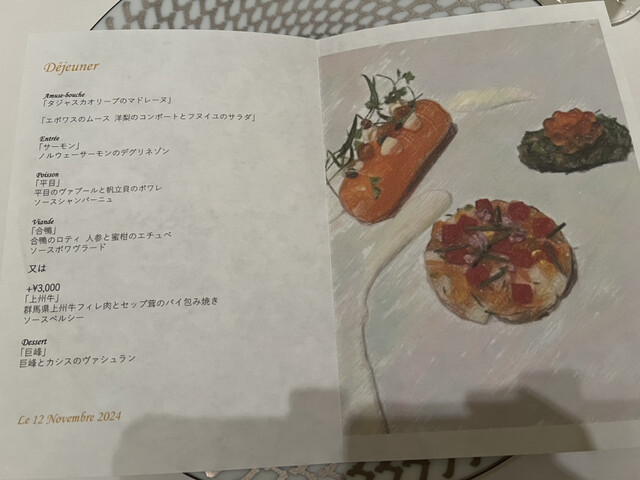 Déjeuner
Amuse-bouche
「タジャスカオリーブのマドレーヌ」
「エポワスのムース 洋梨のコンポートとフヌイユのサラダ」
Entrée
「サーモン」
ノルウェーサーモンのデグリネゾン
Poisson
「平目」
平目のヴァプールと帆立貝のポワレ
ソースシャンパーニュ
Viande
「合鴨」
合鴨のロティ 人参と蜜柑のエチュベ
ソースポワヴラード
又は
+¥3,000
「上州牛」
群馬県上州牛フィレ肉とセップ茸のパイ包み焼き
ソースペルシー
Dessert
「巨峰」
巨峰とカシスのヴァシュラン
Le 12 Novembre 2024